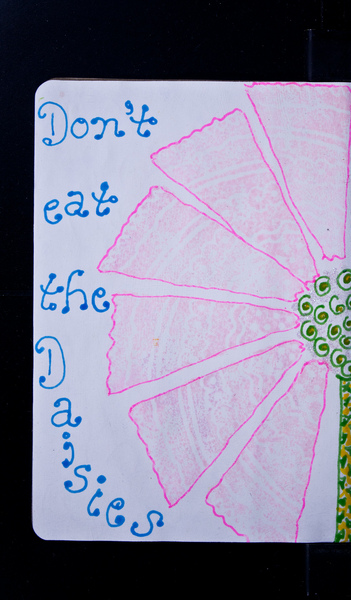 Don't
eat
the
Daisies